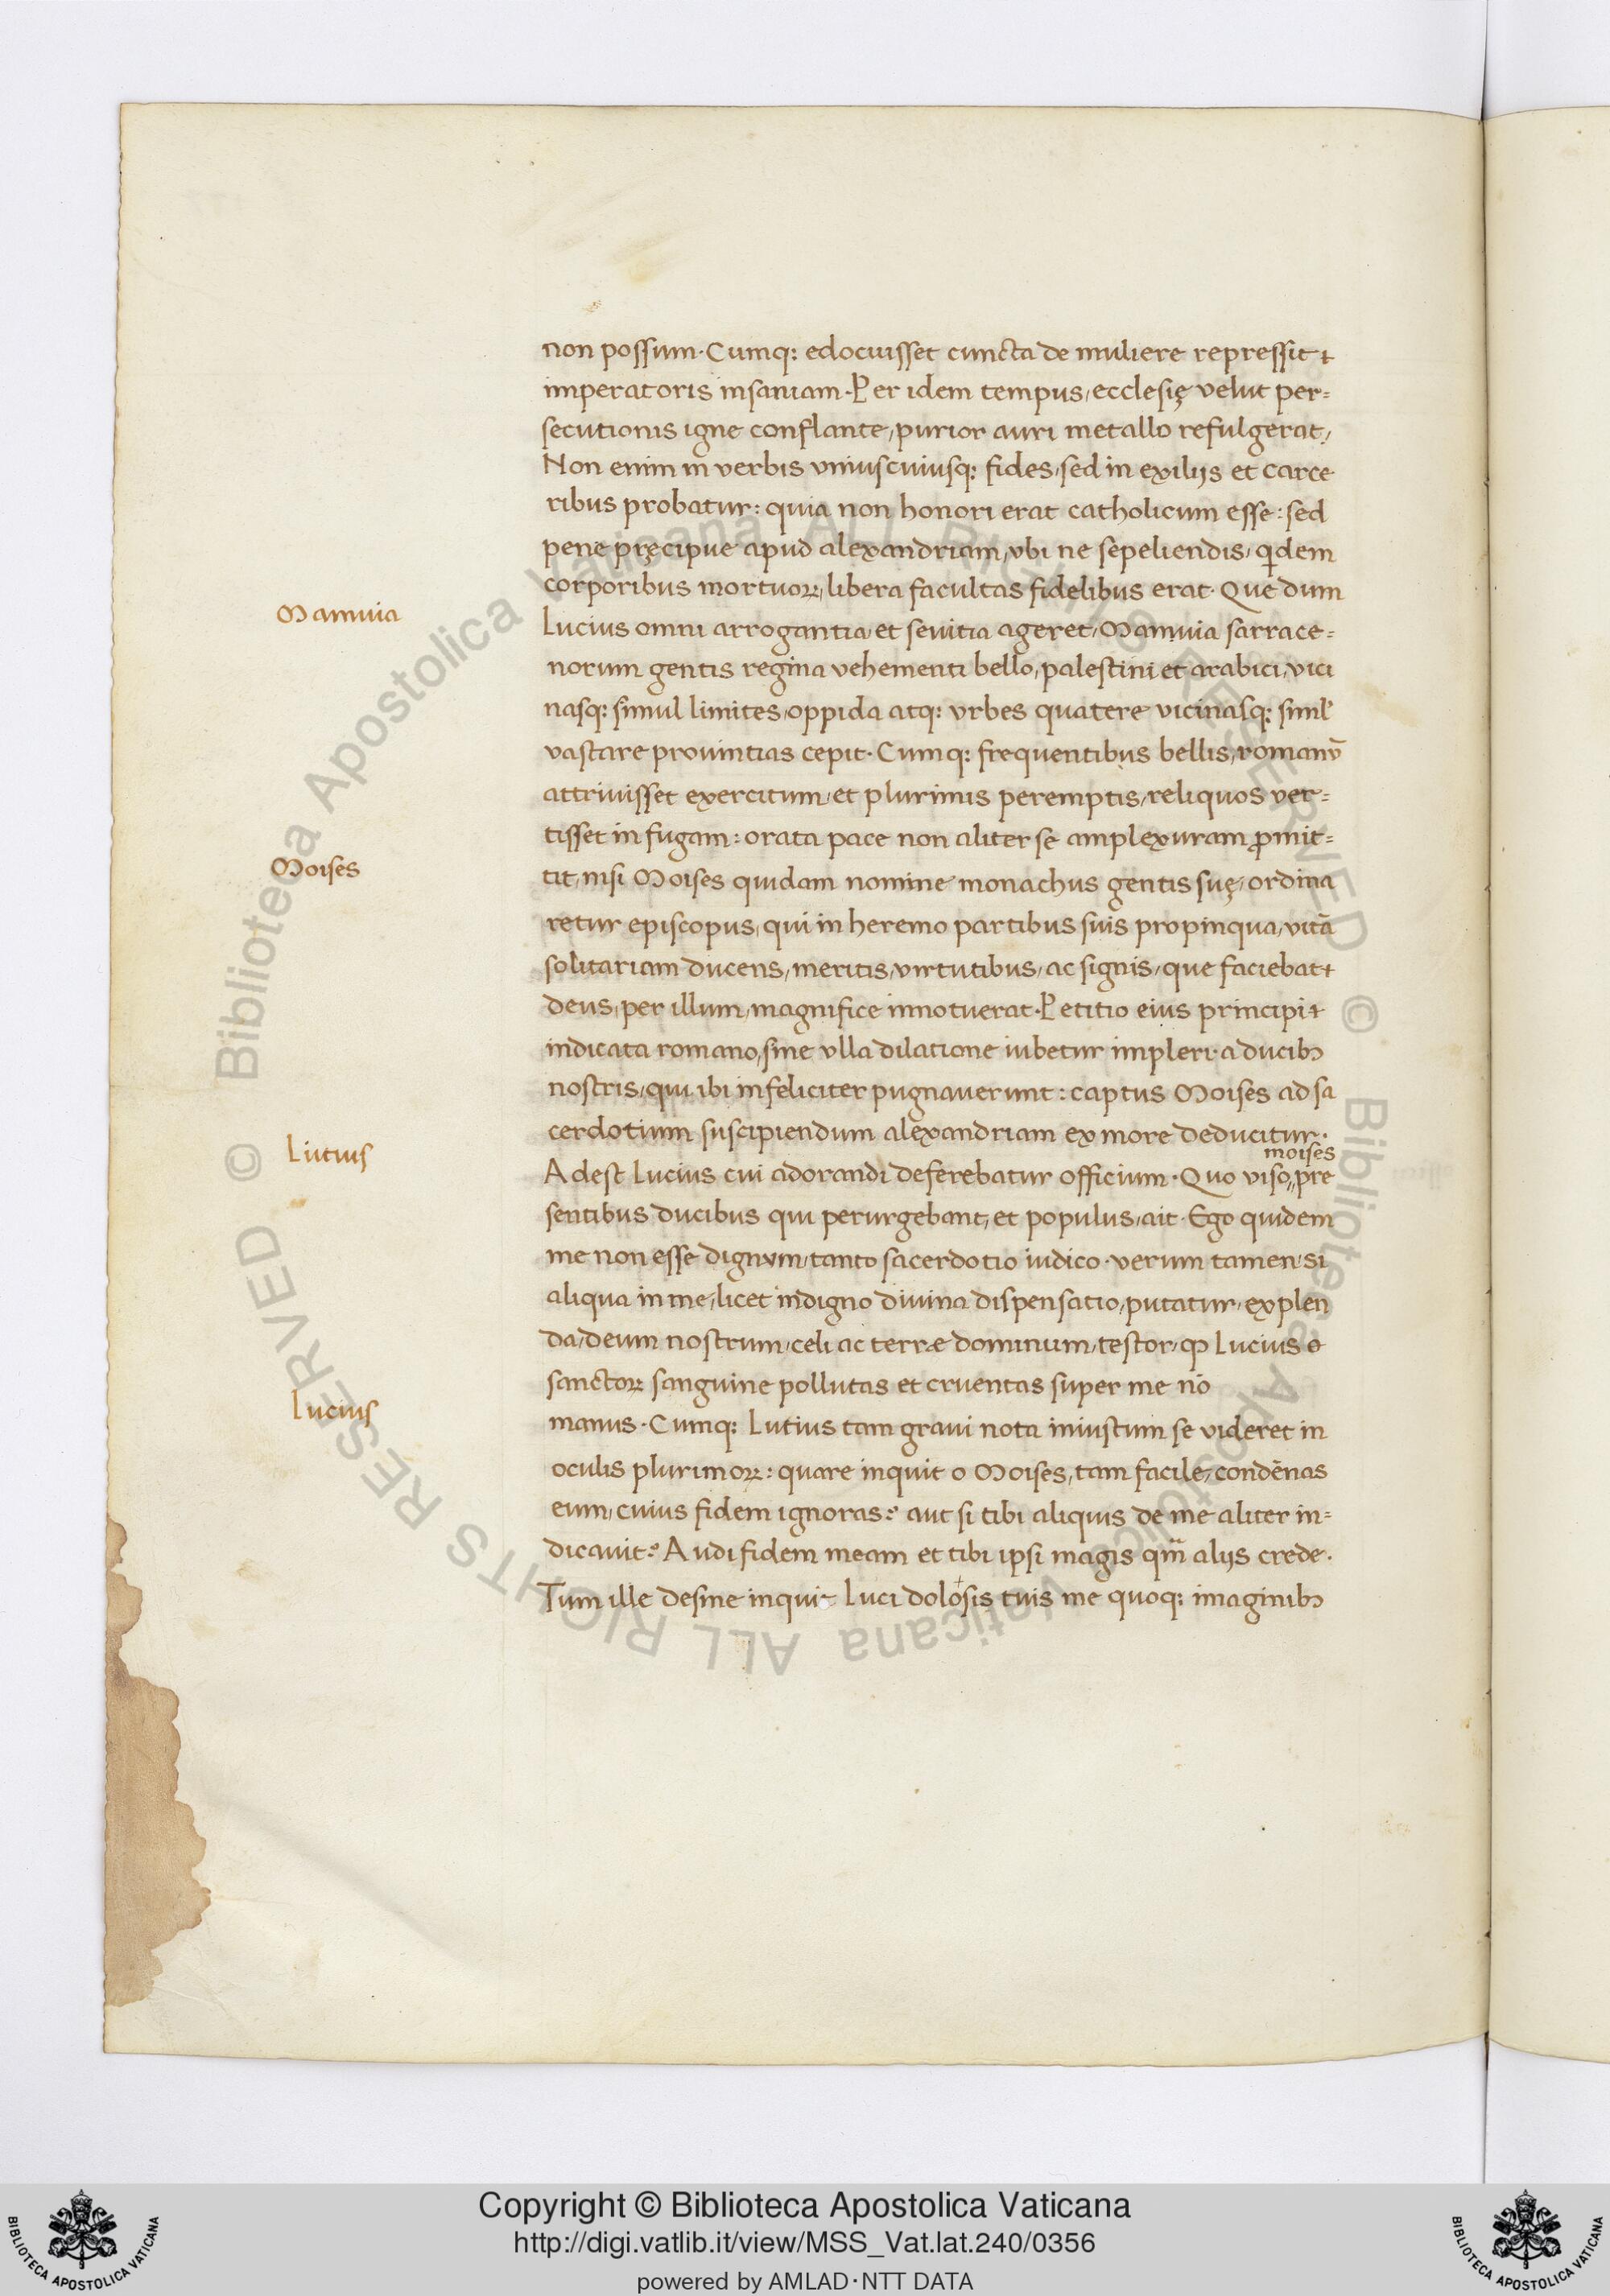 non possum. Cumq: edocuisset cuncta de muliere repressit
imperatoris insaniam. Per idem tempus, ecclesię velut per=
secutionis igne conflante, purior auri metallo refulgerat,
Non enim in verbis uniuscuiusq: fides, sed in exilijs et carce
ribus probatur: quia non honori erat catholicum esse: sed
pene pręcipue apud alexandriam, ubi ne sepeliendis, qidem
corporibus mortuoꝝ, libera facultas fidelibus erat. Que dum
Mamuia
Lucius omni arrogantia, et sevitia ageret, Mamuia sarrace=
norum gentis regina vehementi bello, palestini et arabici, vici
nasq: simul limites, oppida atq: urbes quatere vicinasq: simul
vastare provintias cepit. Cumq: frequentibus bellis, romanū
attrivisset exercitum, et plurimis peremptis, reliquos ver=
tisset in fugam: orata pace non aliter se amplexuram ꝓmit=
Moises
tit, nisi Moises quidam nomine monachus gentis suę, ordina
retur episcopus, qui in heremo partibus suis propinqua, vitā
solitariam ducens, meritis, virtutibus, ac signis, que faciebat
deus, per illum, magnifice innotuerat. Petitio eius principi
indicata romano, sine ulla dilatione iubetur impleri. a ducibꝫ
nostris, qui ibi infeliciter pugnaverunt: captus Moises ad sa
cerdotium suscipiendum alexandriam ex more deducitur.
Lutius
moises
Adest Lucius cui adorandi deferebatur officium. Quo viso, pre
sentibus ducibus qui perurgebant, et populus, ait. Ego quidem
me non esse dignum, tanto sacerdotio iudico. verum tamen, si
aliqua in me, licet indigno divina dispensatio, putatur, explen
da, deum nostrum, celi ac terræ dominum, testor, qꝫ Lucius
sanctoꝝ sanguine pollutas et cruentas super me nō
Lucius
manus. Cumq: Lutius tam gravi nota iniustum se videret in
oculis plurimoꝝ: quare inquit o Moises, tam facile, condēnas
eum, cuius fidem ignoras? aut si tibi aliquis de me aliter in=
dicavit? Audi fidem meam et tibi ipsi magis qm̄ alijs crede.
Tum ille desine inquit Luci dolosis tuis me quoq: imaginibꝫ
Copyright © Biblioteca Apostolica Vaticana
http://digi.vatlib.it/view/MSS_Vat.lat.240/0356
powered by AMLAD·NTT DATA
BIBLIOTECA APOSTOLICA VATICANA
BIBLIOTECA APOSTOLICA VATICANA
© Biblioteca Apostolica Vaticana ALL RIGHTS RESERVED © Biblioteca Apostolica Vaticana ALL RIGHTS RESERVED